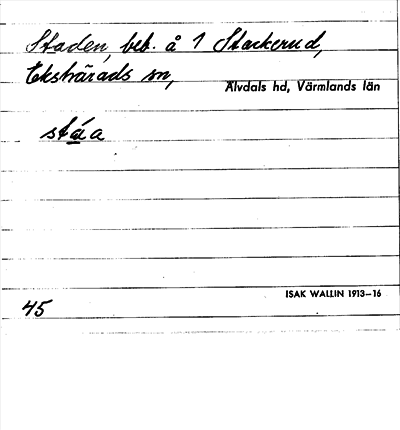 Staden, beb. å 1 Stackerud,
Ekshärads sn,
Älvdals hd, Värmlands län
stáa
ISAK WALLIN 1913–16
45